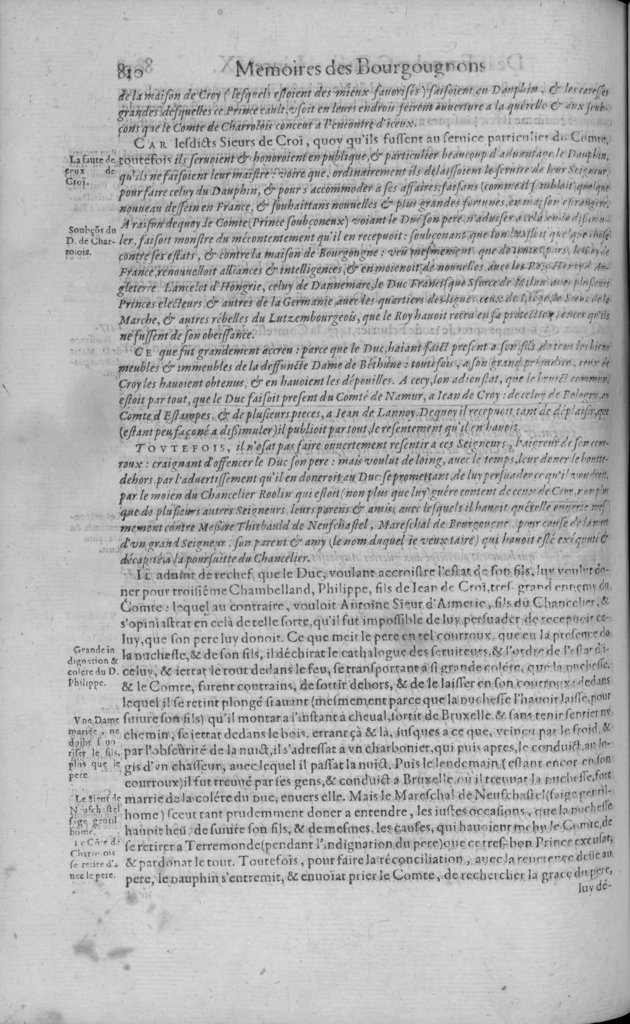 810
Memoires des Bourgougnons
de la maison de Croy (lesquels estoient des mieux favorisés) faisoient au Dauphin, & les caresses
grandes desquelles ce Prince cault, vsoit en leurs endrois, feirent ouverture a la quérelle & aux soub-
çons que le Comte de Charrolois conceut a l'encontre d'iceux.
CAR lesdicts Sieurs de Croï, quoy qu'ils fussent au service particulier du Comte,
toutefois ils servoient & honoroient en publique, & particulier beaucoup d'aduantage le Dauphin,
qu'ils ne faisoient leur maistre: voire que, ordinairement ils délaissoient le service de leur Seigneur,
pour faire celuy du Dauphin, & pour s'accommoder a ses affaires, faisans (comme il sembloit) quelque
nouveau dessein en France, & souhaittans nouvelles & plus grandes fortunes, en maison estrangére.
A raison dequoy, le Comte (Prince soubçoneux) voiant le Duc son pere n'aduiser a cela en de dissimu-
ler, faisoit monstre du mécontentement qu'il en recepuoit: soubçonant, que lon brassoit quelque chose
contre ses estats, & contre la maison de Bourgougne: veu mesmement que de toutes pars, le Roy de
France, renouvelloit alliances & intelligences, & en moienoit de nouvelles avec les Roy Henry d'An-
gleterre Lancelot d'Hongrie, celuy de Dannemare, le Duc Francisque Sforce de Milan avec plusieurs
Princes electeurs, & autres de la Germanie avec les quartiers des ligues ceux de Liége, le Sieur de la
Marche, & autres rébelles du Lutzembourgeois, que le Roy havoit receu en sa protection, encor qu'ils
ne fussent de son obeissance.
CE que fut grandement accreu: parce que le Duc, haiant faict present a son fils, de tous les biens
meubles & immeubles de la deffuncte Dame de Béthune: toutefois, a son grand préiudice, ceux de
Croy les havoient obtenus, & en havoient les dépouilles. A cecy, lon adioustat, que le bruict commun
estoit par tout, que le Duc faisoit present du Comté de Namur, a Iean de Croy: de celuy de Bologne, au
Comte d'Estampes, & de plusieurs pieces, a Iean de Lannoy. Dequoy il recepuoit tant de déplaisir, que
(estant peu façoné a dissimuler) il publioit par tout, le resentement qu'il en havoit.
TOVTEFOIS, il n'osat pas faire ouvertement resentir a ces Seigneurs, l'aigreur de son cour-
roux: craignant d'offencer le Duc son pere: mais voulut de loing, avec le temps, leur doner le boute-
dehors, par l'advertissement qu'il en doneroit au Duc se promettant, de luy persuader ce qu'il voudroit,
par le moien du Chancelier Roolin qui estoit (non plus que luy) guére content de ceux de Croy, non plus
que de plusieurs autres Seigneurs, leurs parens & amis, avec lesquels il havoit quérelle ouverte, mes-
mement contre Messire Thiebauld de Neufchastel, Mareschal de Bourgougne, pour cause de la mort
d'vn grand Seigneur, son parent & amy (le nom duquel ie veux taire) qui havoit esté exécuté &
décapité, a la poursuitte du Chancelier.
IL advint de rechef, que le Duc, voulant accroistre l'estat de son fils, luy voulut do-
ner pour troisiéme Chambelland, Philippe, fils de Iean de Croï, tres-grand ennemy du
Comte: lequel au contraire, vouloit Antoine Sieur d'Aimerie, fils du Chancelier, &
s'opiniastrat en celà de telle sorte, qu'il fut impossible de luy persuader, de recepvoir ce-
luy, que son pere luy donoit. Ce que meit le pere en tel courroux, que en la presence de
la Duchesse, & de son fils, il déchirat le cathalogue des serviteurs, & l'ordre de l'estat di-
celuy, & iettat le tout dedans le feu, se transportant a si grande colére, que la Duchesse,
& le Comte, furent contrains, de sortir dehors, & de le laisser en son courroux: dedans
lequel il se retint plongé si avant (mesmement parce que la Duchesse l'havoit laissé, pour
suivre son fils) qu'il montat a l'instant a cheval, sortit de Bruxelle, & sans tenir sentier ny
chemin, se iettat dedans le bois, errant çà & là, iusques a ce que, veincu par le froid, &
par l'obscurité de la nuict, il s'adressat a vn charbonier, qui puis apres, le conduict au lo-
gis d'vn chasseur, avec lequel il passat la nuict. Puis le lendemain (estant encor en son
courroux) il fut treuvé par ses gens, & conduict a Bruxelle, où il treuvat la Duchesse, fort
marrie de la colére du Duc, envers elle. Mais le Mareschal de Neufchastel (saige gentil-
home) sceut tant prudemment doner a entendre, les iustes occasions, que la Duchesse
havoit heu, de suivre son fils, & de mesmes, les causes, qui havoient mehu le Comte, de
se retirer a Terremonde (pendant l'indignation du pere) que ce tres-bon Prince excusat,
& pardonat le tout. Toutefois, pour faire la réconciliation, avec la reverence deüe au
pere, le Dauphin s'entremit, & envoiat prier le Comte, de rechercher la grace du pere,
luy dé-
La faute de
ceux de
Croï.
Soubçõs du
D. de Char-
rolois.
Grande in
dignation &
colére du D.
Philippe.
Vne Dame
mariée, ne
doibt fauo-
riser le fils,
plus que le
pere.
Le Sieur de
Neufchastel
sage gentil
home.
Le Côte de
Charrolois
se retire d'a
vec le pere.